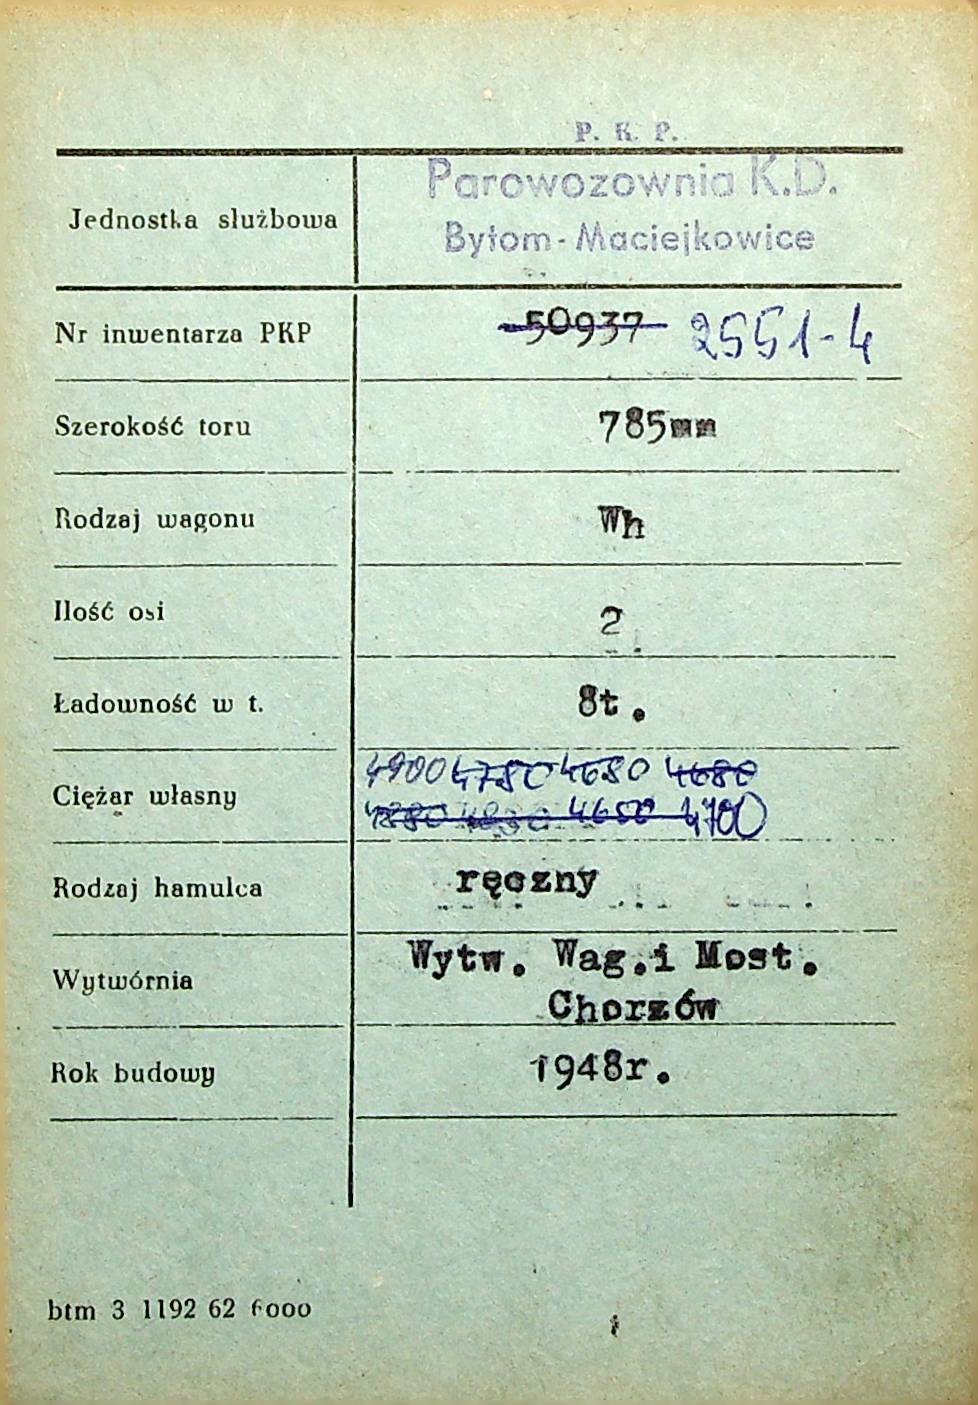 P. K. P.
Jednostka służbowa Parowozownia K.D.
Bytom-Maciejkowice
Nr inwentarza PKP 50937 2551-4
Szerokość toru 785mm
Rodzaj wagonu Wh
Ilość osi 2
Ładowność w t. 8t.
Ciężar własny 4900 4780 4680 4680
4880 4830 4650 4700
Rodzaj hamulca ręczny
Wytwórnia Wytw. Wag.i Most.
Chorzów
Rok budowy 1948r.
btm 3 1192 62 6000